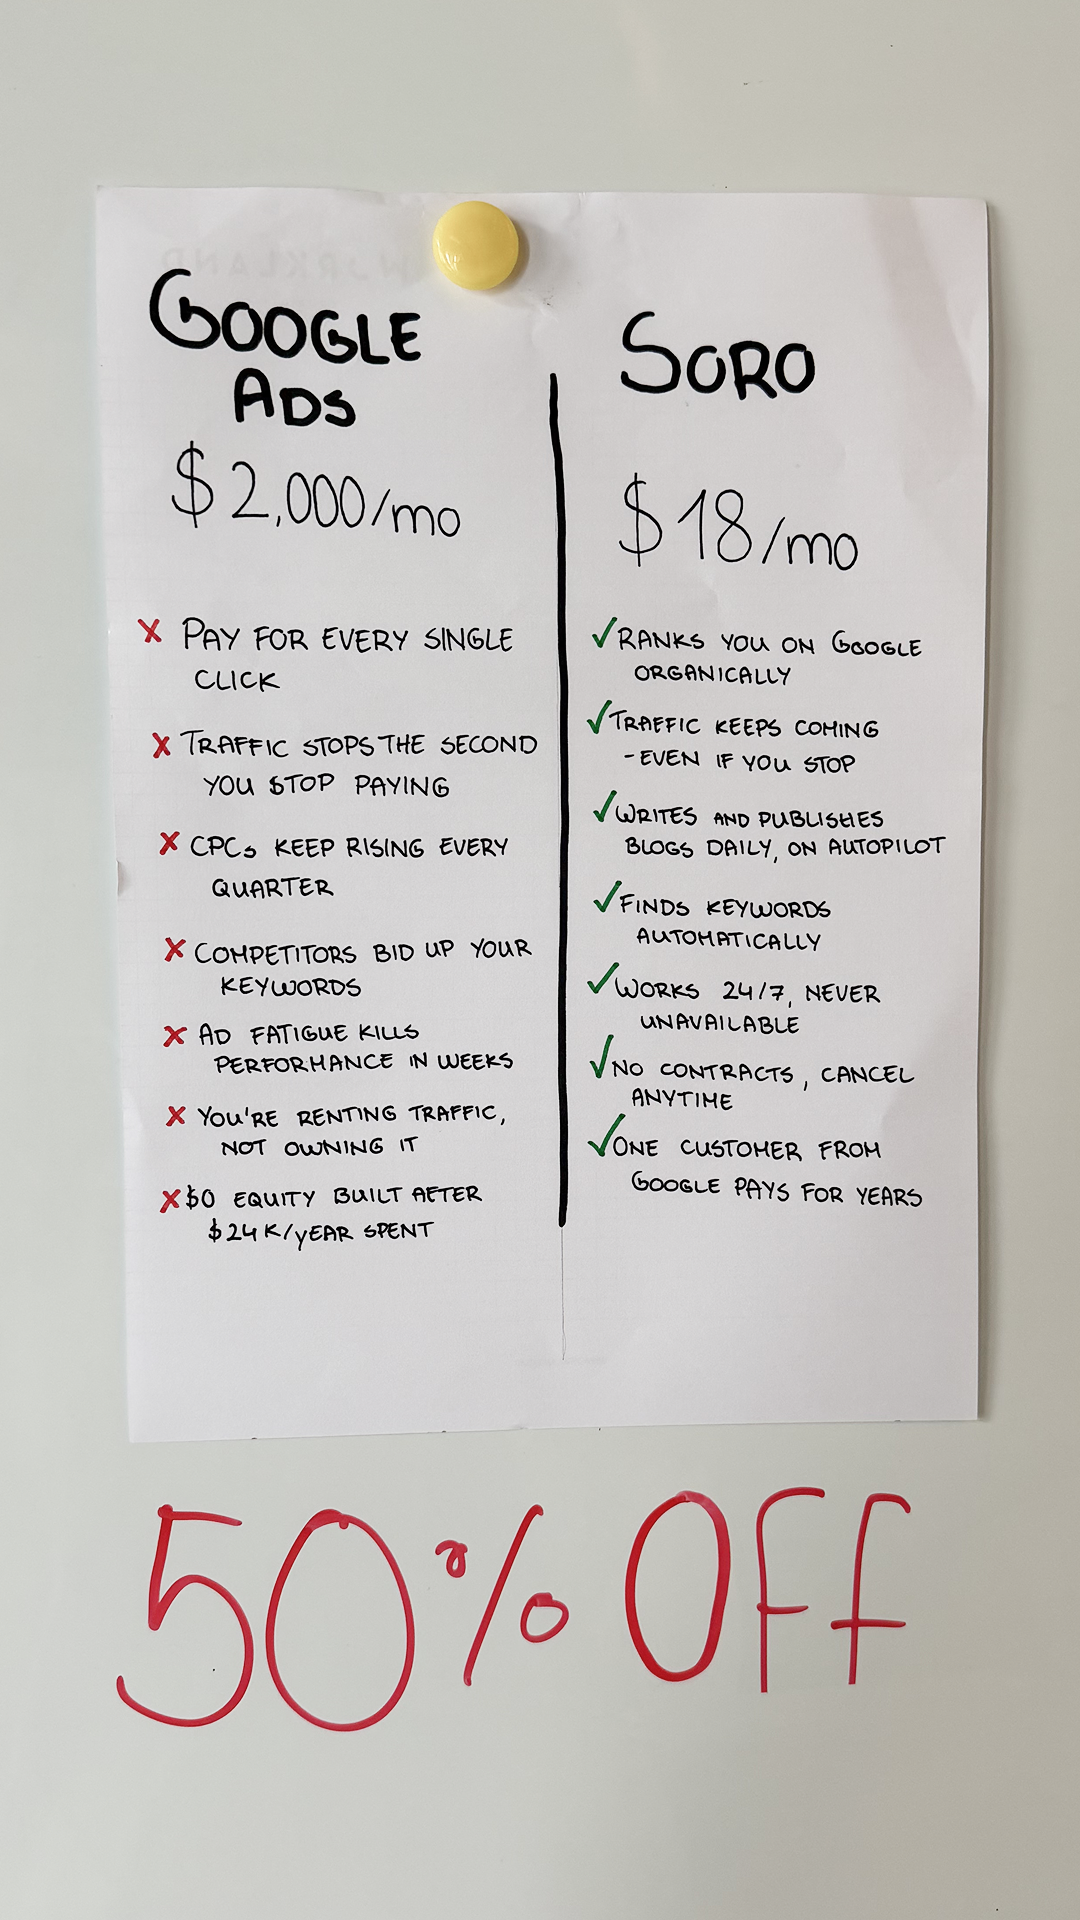 GOOGLE
ADS
$2,000/mo
X PAY FOR EVERY SINGLE
CLICK
X TRAFFIC STOPS THE SECOND
YOU STOP PAYING
X CPCs KEEP RISING EVERY
QUARTER
X COMPETITORS BID UP YOUR
KEYWORDS
X AD FATIGUE KILLS
PERFORMANCE IN WEEKS
X YOU'RE RENTING TRAFFIC,
NOT OWNING IT
X $0 EQUITY BUILT AFTER
$24K/YEAR SPENT
SORO
$18/mo
✓ RANKS YOU ON GOOGLE
ORGANICALLY
✓ TRAFFIC KEEPS COMING
- EVEN IF YOU STOP
✓ WRITES AND PUBLISHES
BLOGS DAILY, ON AUTOPILOT
✓ FINDS KEYWORDS
AUTOMATICALLY
✓ WORKS 24/7, NEVER
UNAVAILABLE
✓ NO CONTRACTS, CANCEL
ANYTIME
✓ ONE CUSTOMER FROM
GOOGLE PAYS FOR YEARS
50% OFF